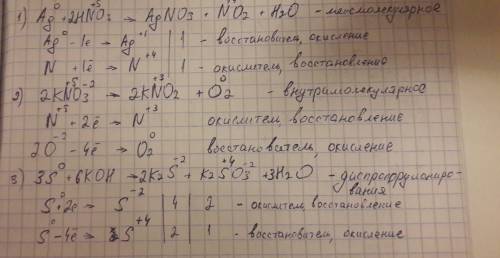 1) Ag⁰ + 2HN⁺⁵O₃ → AgNO₃ + N⁺⁴O₂ + H₂O - межмолекулярное
Ag⁰ - 1ē → Ag⁺¹ | 1 - восстановител, окисление
N⁺⁵ + 1ē → N⁺⁴ | 1 - окислител, восстановление
2) 2KN⁺⁵O₃⁻² → 2KN⁺³O₂ + O₂⁰ - внутримолекулярное
N⁺⁵ + 2ē → N⁺³ окислител, восстановление
2O⁻² - 4ē → O₂⁰ восстановител, окисление
3) 3S⁰ + 6KOH → 2K₂S⁻² + K₂S⁺⁴O₃⁻² + 3H₂O - диспропорционирования
S⁰ + 2ē → S⁻² | 4 | 2 - окислител, восстановление
S⁰ - 4ē → S⁺⁴ | 2 | 1 - восстановител, окисление